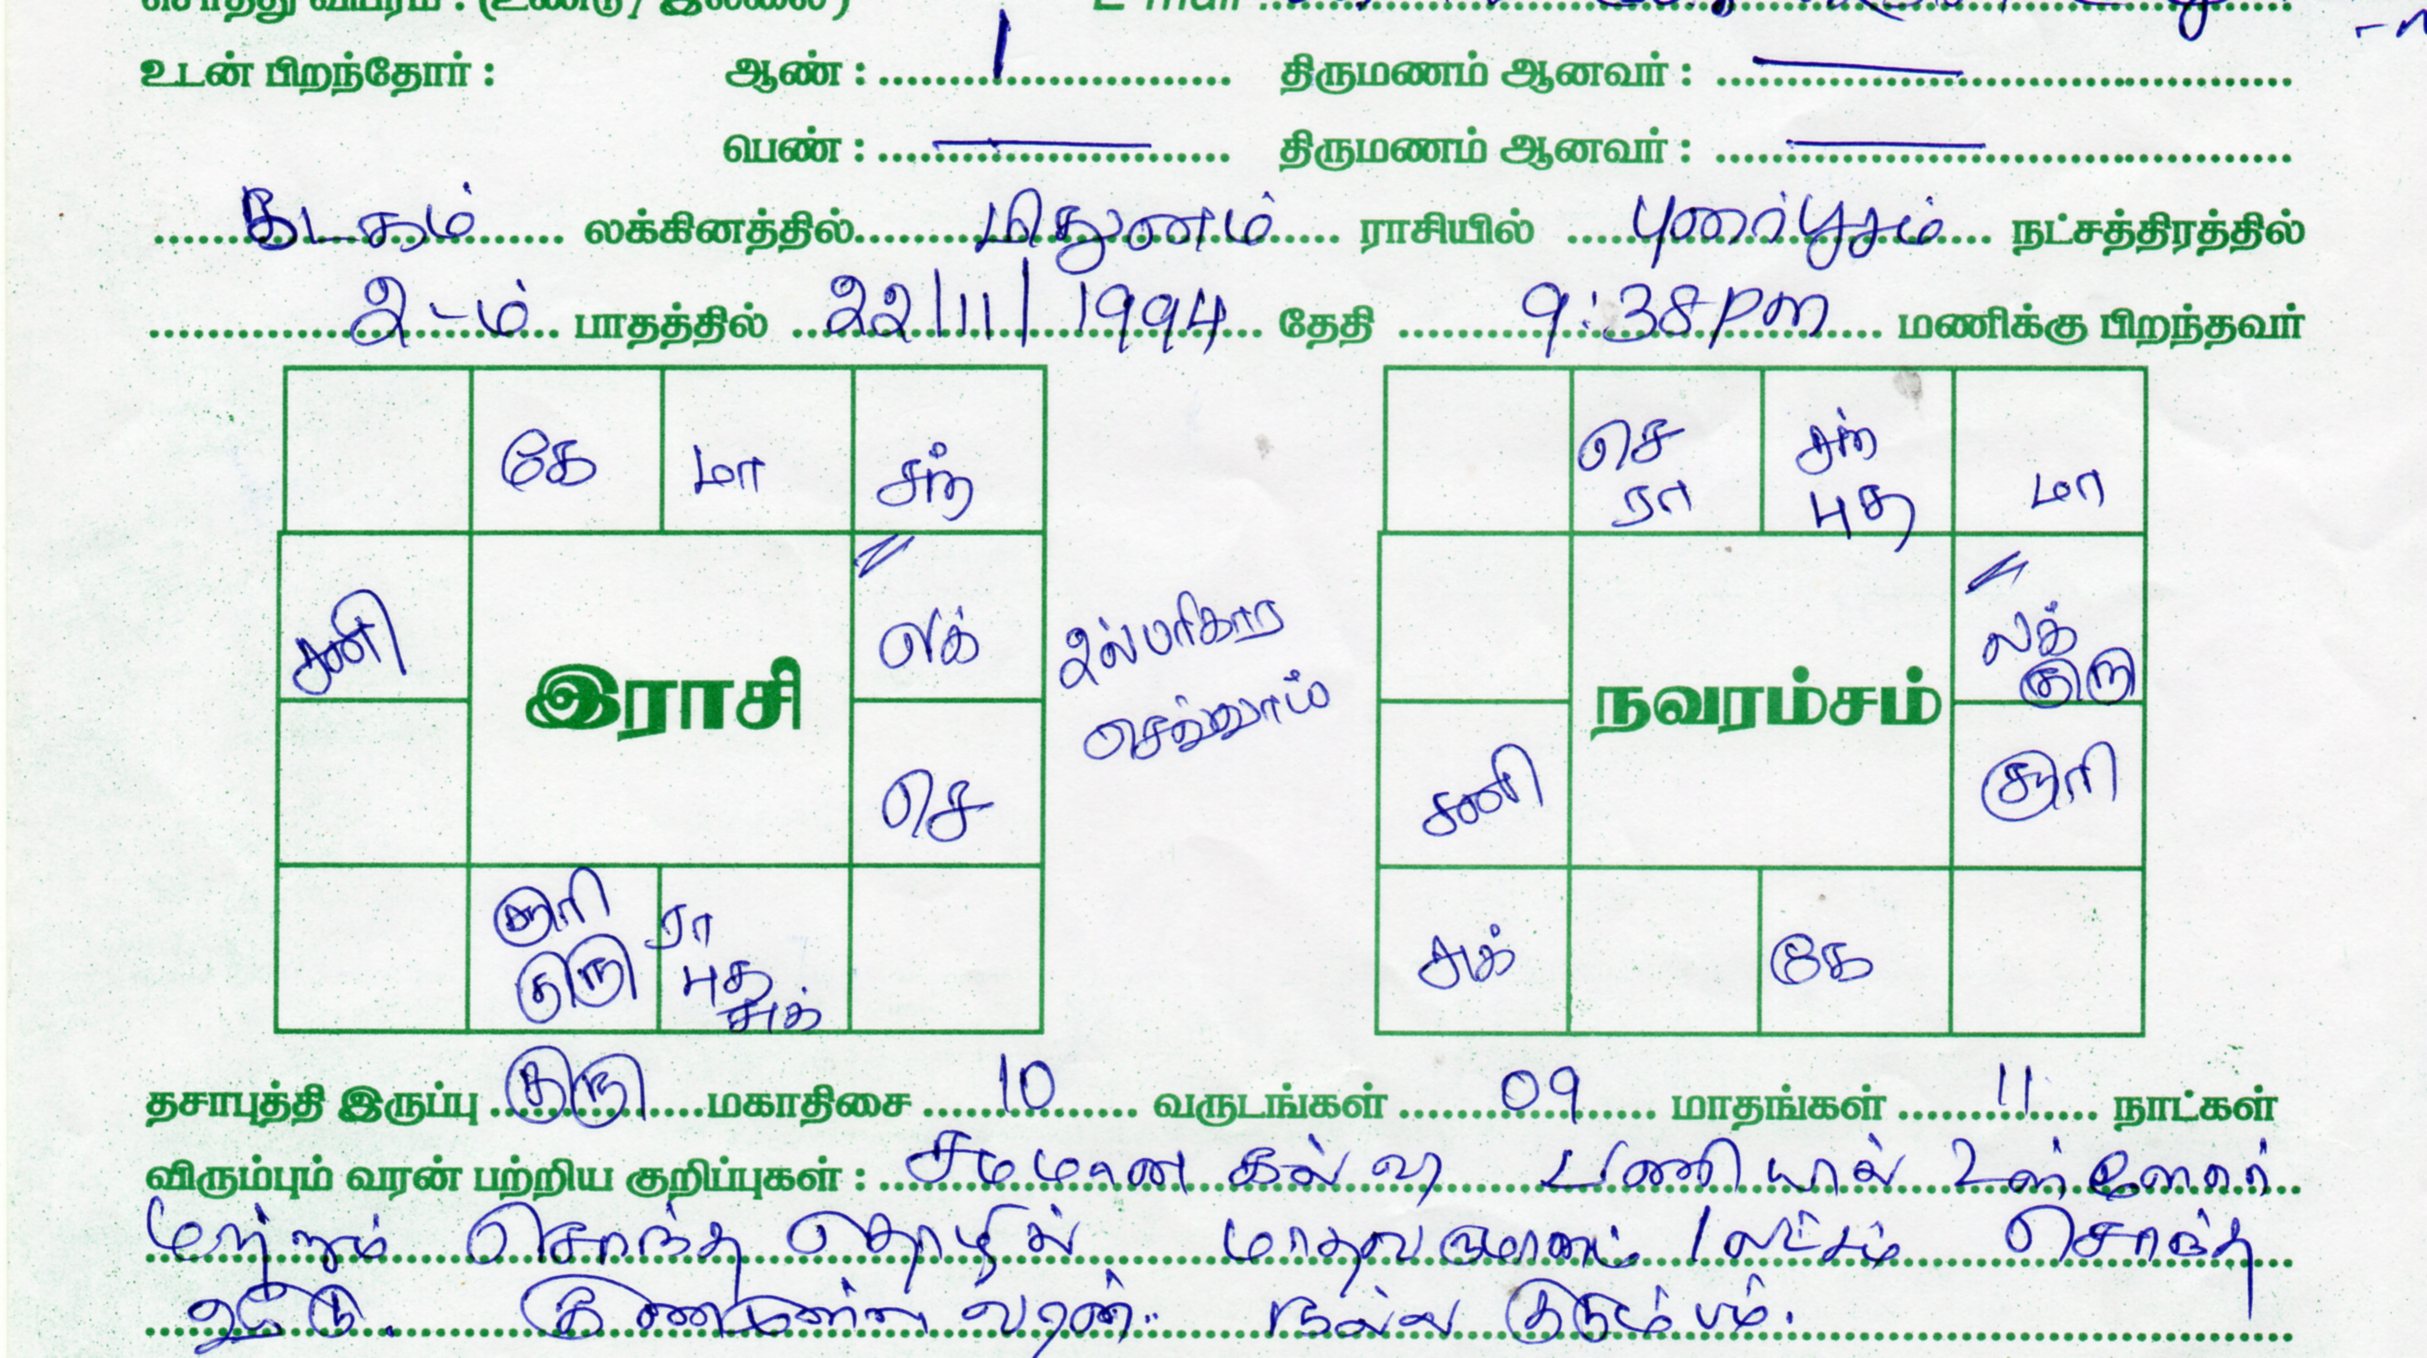 சொத்து விபரம் : (உண்டு / இல்லை) E-mail :
உடன் பிறந்தோர் : ஆண் : 1 திருமணம் ஆனவர் : —
பெண் : — திருமணம் ஆனவர் : —
கடகம் லக்கினத்தில் மிதுனம் ராசியில் புனர்பூசம் நட்சத்திரத்தில்
2-ம் பாதத்தில் 22/11/1994 தேதி 9:38pm மணிக்கு பிறந்தவர்
கே மா சந்
செ சந் மா
ரா புத
சனி லக்
லக் குரு
இராசி
நவரம்சம்
செ
சனி சூரி
சூரி ரா
குரு புத
சுக்
சுக் கே
தசாபுத்தி இருப்பு குரு மகாதிசை 10 வருடங்கள் 09 மாதங்கள் 11 நாட்கள்
விரும்பும் வரன் பற்றிய குறிப்புகள் : சமமான கல்வி பணியில் உள்ளவர்
மற்றும் சொந்த தொழில் மாதவருமானம் 1 லட்சம் சொந்த
வீடு. குணமுள்ள வரன். நல்ல குடும்பம்.